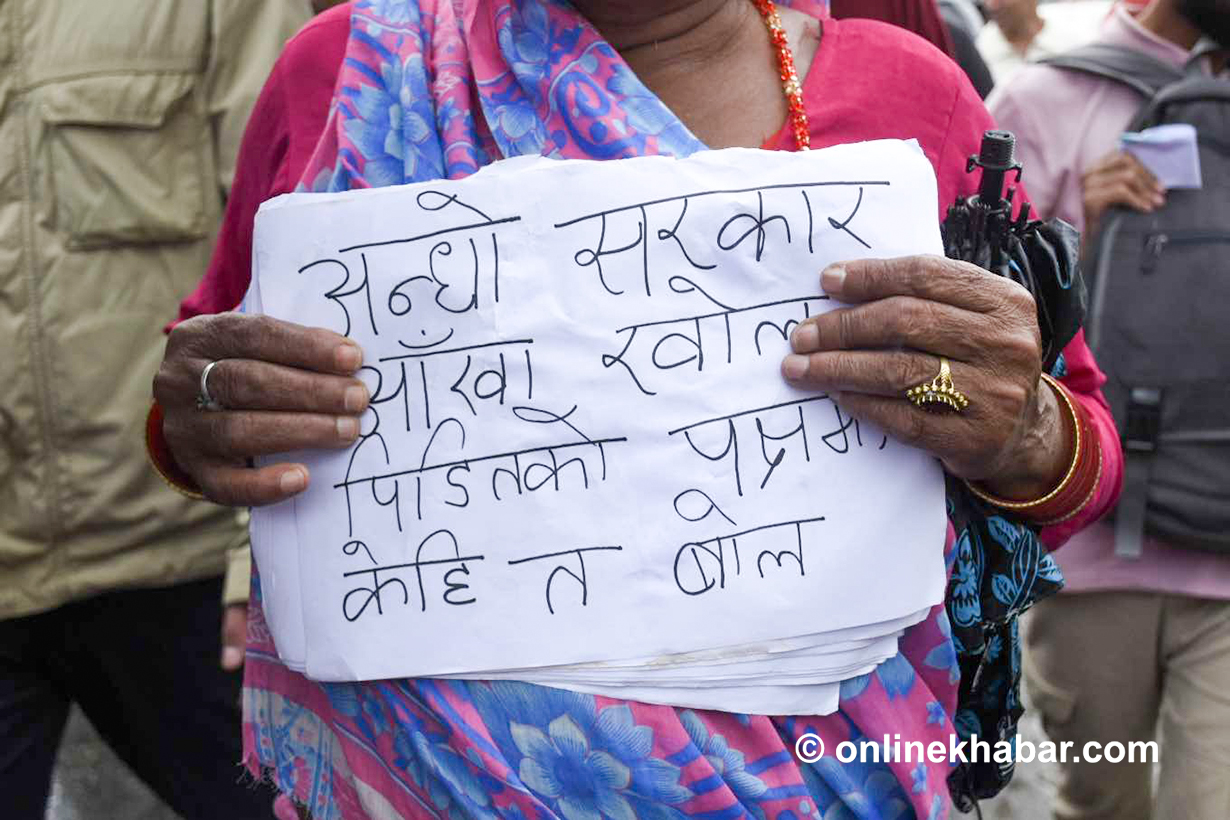 अन्धो सरकार
आँखा खोल
पिडितको पक्षमा
केहि त बोल
© onlinekhabar.com